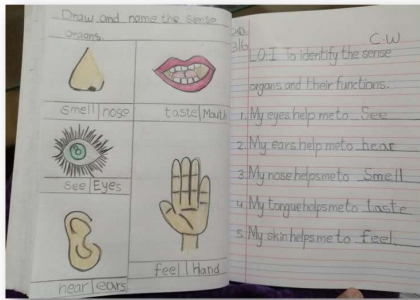 Draw and name the sense
organs.
smell/nose
taste/Mouth
see/Eyes
feel/Hand
hear/ears
3/6
C.W
L.O:I To identify the sense
organs and their functions.
1. My eyes help me to See
2. My ears help me to hear
3. My nose helps me to Smell
4. My tongue helps me to taste
5. My skin helps me to feel.